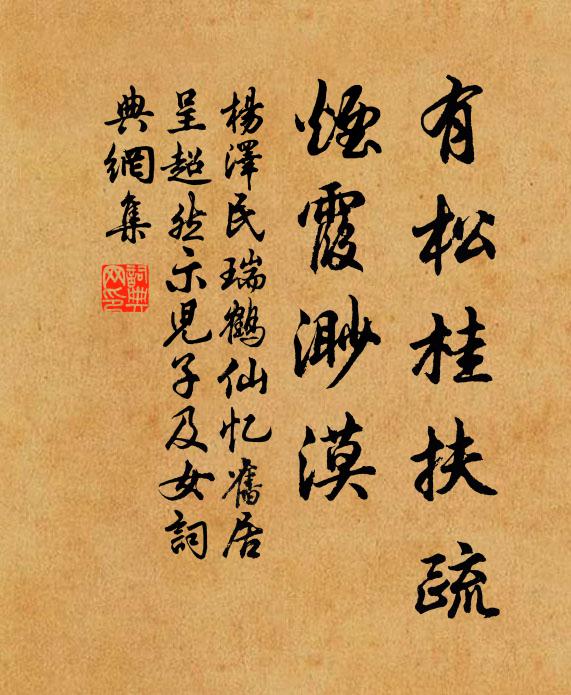 有松桂扶疏
煙霞渺漠
楊澤民瑞鶴仙忆舊居
呈超然示児子及女詞
典網集
詞典
网印